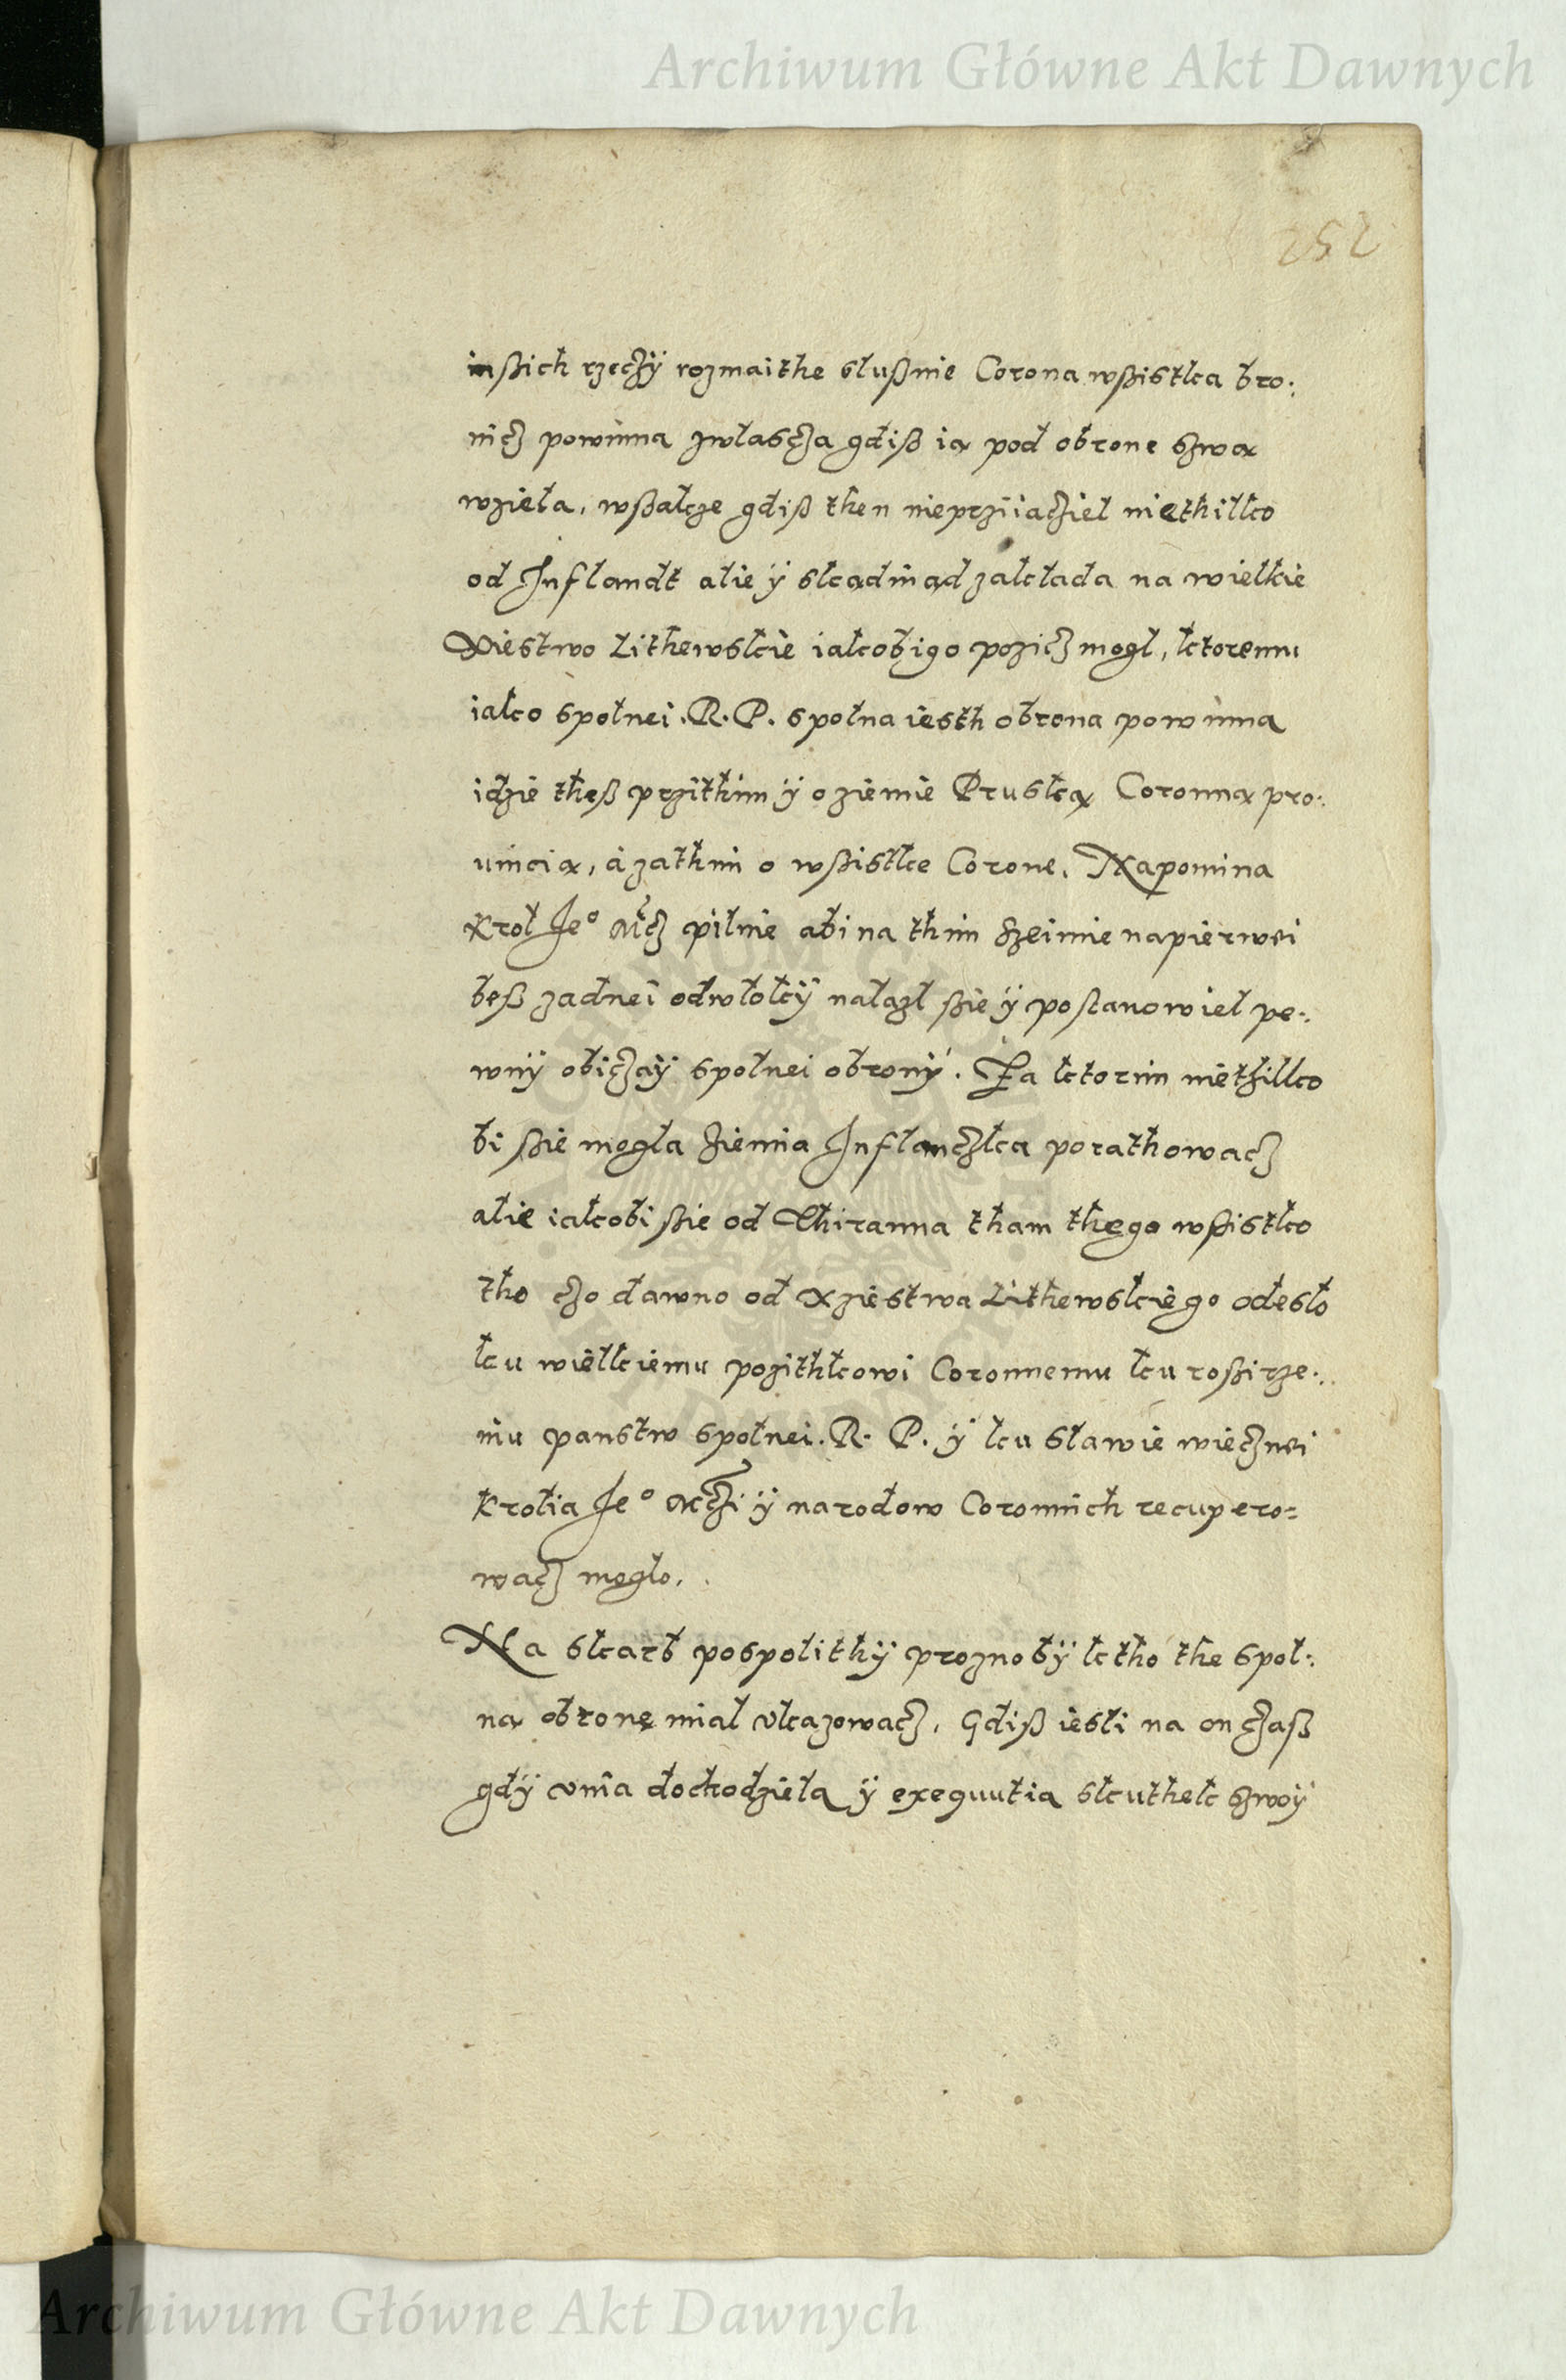 Archiwum Główne Akt Dawnych
252
inßich rzeczÿ rozmaithe slußnie Corona wßistka bro:
nicz powinna zwlascza gdiß ią pod obrone szwą
wzieła, wßakze gdiß then nieprziiacziel niethilko
od Inflandt alie ÿ skądinąd zakłada na wielkie
Xiestwo Lithewskie iakobigo pozicz mogl, ktoremu
iako spolnei .R.P. spolna iesth obrona powinna
idzie theß przithim ÿ o ziemie Pruską Coronną pro:
uincią, à zathim o wßistke Corone. Napomina
Krol Jeº Mcz pilnie abi na thim szeimie napierwei
beß zadnei odwlokÿ nalazl ßie ÿ postanowiel pe:
wnÿ obiczaÿ spolnei obronÿ. Za ktorim niethilko
bi ßie mogla Ziemia Inflanczka porathowacz
alie iakobi ßie od Thiranna tham thego wßistko
tho czo dawno od Xziestwa Lithewskiego odeslo
ku wielkiemu pozithkowi Coronnemu ku roßirze:
niu panstw spolnei .R. P. ÿ ku slawie wiecznei
Krolia Jeº Mczi ÿ narodow Coronnich recupero=
wacz moglo.
Na skarb pospolithÿ prozno bÿ ktho the spol:
ną obronę mial vkazowacz. Gdiß iesli na on czaß
gdÿ vnia dochodziela ÿ exequutia skuthek szwoÿ
Archiwum Główne Akt Dawnych